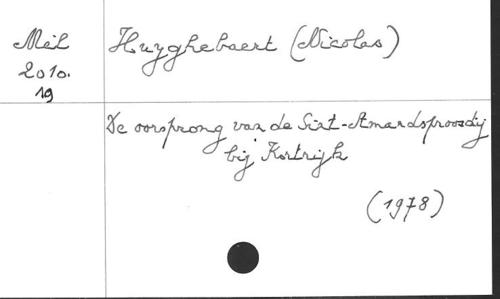 Mél
2010.
19
Huyghebaert (Nicolas)
De oorsprong van de Sint-Amandsproosdij
bij Kortrijk
(1978)